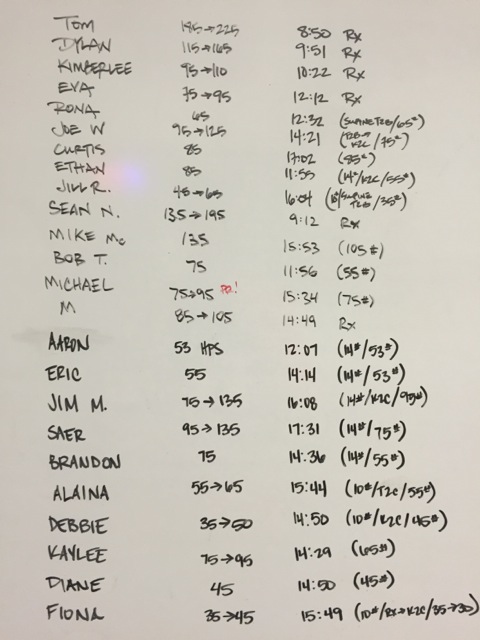 TOM 185→225 8:50 Rx
DYLAN 115→165 9:51 Rx
KIMBERLEE 95→110 10:22 Rx
EVA 75→95 12:12 Rx
RONA 65 12:32 (SUPINE T2B/65#)
JOE W 95→125 14:21 (T2B→K2C/75#)
CURTIS 85 17:02 (85#)
ETHAN 85 11:55 (14#/K2C/55#)
JILL R. 45→65 16:04 (10#/SUPINE T2B/35#)
SEAN N. 135→195 9:12 Rx
MIKE Mc 135 15:53 (105#)
BOB T. 75 11:56 (55#)
MICHAEL 75→95 PR! 15:34 (75#)
M 85→105 14:49 Rx
AARON 53 HPS 12:07 (14#/53#)
ERIC 55 14:14 (14#/53#)
JIM M. 75→135 16:08 (14#/K2C/95#)
SAER 95→135 17:31 (14#/75#)
BRANDON 75 14:36 (14#/55#)
ALAINA 55→65 15:44 (10#/T2C/55#)
DEBBIE 35→50 14:50 (10#/K2C/45#)
KAYLEE 75→95 14:29 (65#)
DIANE 45 14:50 (45#)
FIONA 35→45 15:49 (10#/Rx→K2C/35→30)